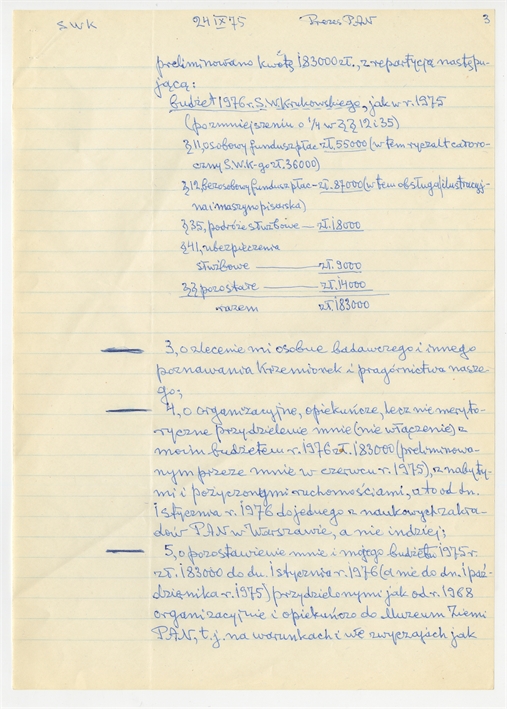 S.W.K 24 IX 75 Prezes PAN 3
preliminowano kwotę 183000 zł., z repartycją następu-
jącą:
budżet 1976 r. S.W.Krukowskiego, jak w r. 1975
(po zmniejszeniu o 1/4 w §§ 12 i 35)
§ 11, osobowy fundusz płac - zł. 55000 (w tem ryczałt całoro-
czny S.W.K-go zł. 36000)
§ 12 bezosobowy fundusz płac - zł. 87000 (w tem obsługa ilustracyj-
na i maszynopisarska)
§ 35, podróże służbowe — zł. 18000
§ 41, ubezpieczenia
służbowe — zł. 9000
§§ pozostałe — zł. 14000
razem zł. 183000
3, o zlecenie mi osobne badawczego i innego
poznawania Krzemionek i pragórnictwa nasze-
go;
4, o organizacyjne, opiekuńcze, lecz nie meryto-
ryczne przydzielenie mnie (nie włączenie) z
moim budżetem r. 1976 zł. 183000 (preliminowa-
nym przeze mnie w czerwcu r. 1975), z nabyty-
mi i pożyczonymi ruchomościami, a to od dn.
1 stycznia r. 1976 do jednego z naukowych zakła-
dów PAN w Warszawie, a nie indziej;
5, o pozostawienie mnie i mojego budżetu 1975 r.
zł. 183000 do dn. 1 stycznia r. 1976 (a nie do dn. 1 paź-
dziernika r. 1975) przydzielonymi jak od r. 1968
organizacyjnie i opiekuńczo do Muzeum Ziemi
PAN, t.j. na warunkach i we zwyczajach jak